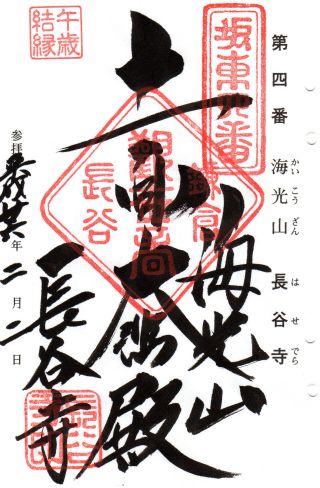 第四番 海光山 長谷寺
かいこうざん
はせでら
坂東四番
海光山
十一面大悲殿
長谷寺
午歳
結縁
鎌高
長谷
参拝
平成廿六年二月二日